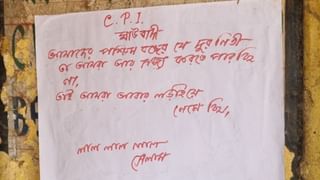 C.P.I.
মাওবাদী
আমাদের পশ্চিম বঙ্গের যে দুর্নিতী
তা আমরা আর সহ্য করতে পারছি
না,
তাই আমরা আবার লড়াইয়ে
নেমেছি,
লাল লাল লাল
সেলাম